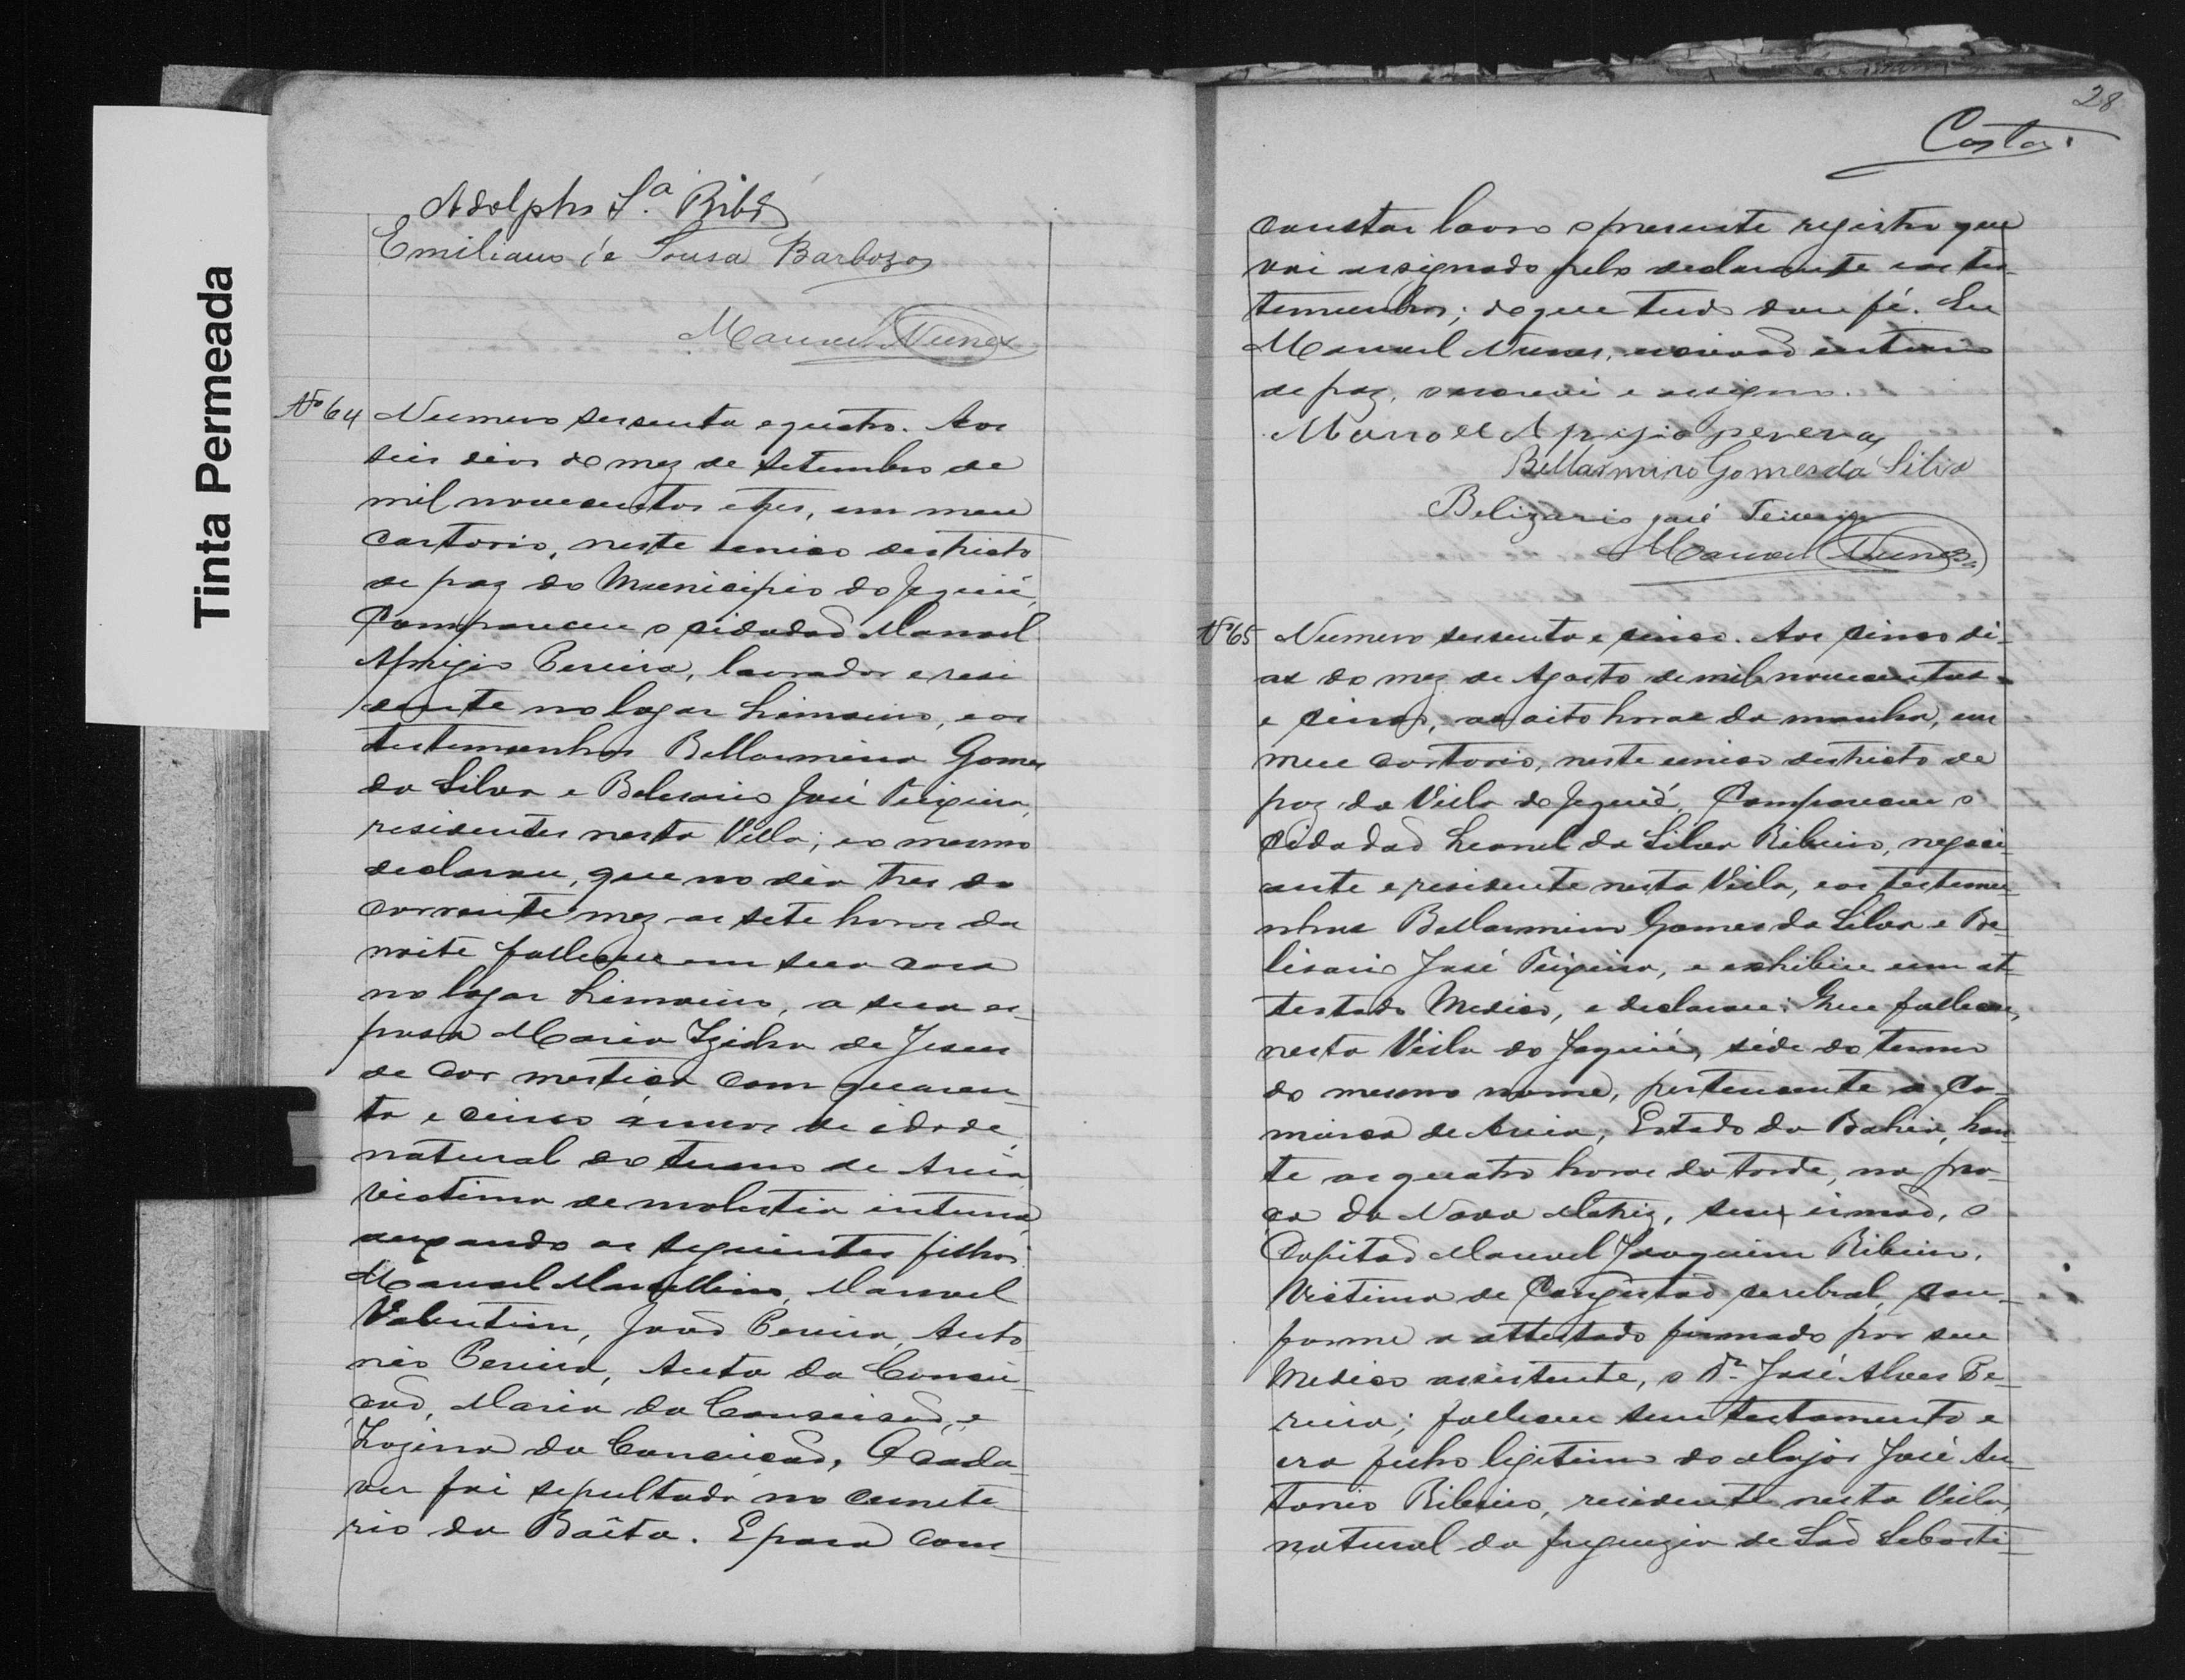 Tinta Permeada
Adolpho S.ª Ribº
Emiliano de Sousa Barbozo
Manoel Nunes
Nº 64 Numero sessenta e quatro. Aos
seis dias do mez de Setembro de
mil novecentos e tres, em meu
cartorio, neste unico destricto
de paz do Municipio do Jequié,
Compareceu o cidadaõ Manoel
Aprigio Pereira, lavrador e resi
dente no logar Limoeiro, e as
testemunhas Bellarmino Gomes
da Silva e Belisario José Teixeira,
residentes nesta Villa; e o mesmo
declarou, que no dia tres do
corrente mez as sete horas da
noite falleceu em sua casa
no logar Limoeiro, a sua es-
posa Maria Izidra de Jesus
de cor mestiça com quaren-
ta e cinco annos de idade,
natural do termo de Areia,
victima de molestia interna,
deixando os seguintes filhos:
Manoel Marcellino, Manoel
Valentim, Joaõ Pereira, Anto
nio Pereira, Anta da Concei-
çaõ, Maria da Conceiçaõ, e
da Conceiçaõ, O cada-
ver foi sepultado no cemite
rio da Baixa. E para cons-
28
Costa
constar lavro o presente registro que
vai assignado pelo declarante e as tes-
temunhas; do que tudo dou fé. Eu
Manoel Nunes, escrivaõ interino
de paz, o escrevi e assigno.
Manoel Aprijio pereira
Bellarmino Gomes da Silva
Belizario José Teixeira
Manoel Nunes
Nº 65 Numero sessenta e cinco. Aos cinco di-
as do mez de Agosto de mil novecentos
e cinco, as oito horas da manha, em
meu cartorio, neste unico destricto de
paz da Villa de Jequié, Compareceu o
Cidadaõ Leonel da Silva Ribeiro, negoci-
ante e residente nesta Villa, e as testemu-
nhas Bellarmino Gomes da Silva e Be-
lisario José Teixeira, e exhibiu um at-
testado Medico, e declarou: Que falleceu,
nesta Villa do Jequié, séde do termo
do mesmo nome, pertencente a Co-
marca de Areia, Estado da Bahia, hon-
te as quatro horas da tarde, na pra-
ça da Nova Matriz, seu irmaõ, o
Capitaõ Manoel Joaquim Ribeiro,
Victima de Congestaõ cerebral, con-
forme o attestado firmado por seu
Medico assistente, o Dr. José Alves Pe-
reira; falleceu sem testamento e
era filho legitimo do Major José An-
tonio Ribeiro, residente nesta Villa,
natural da freguezia de Saõ Sebasti-